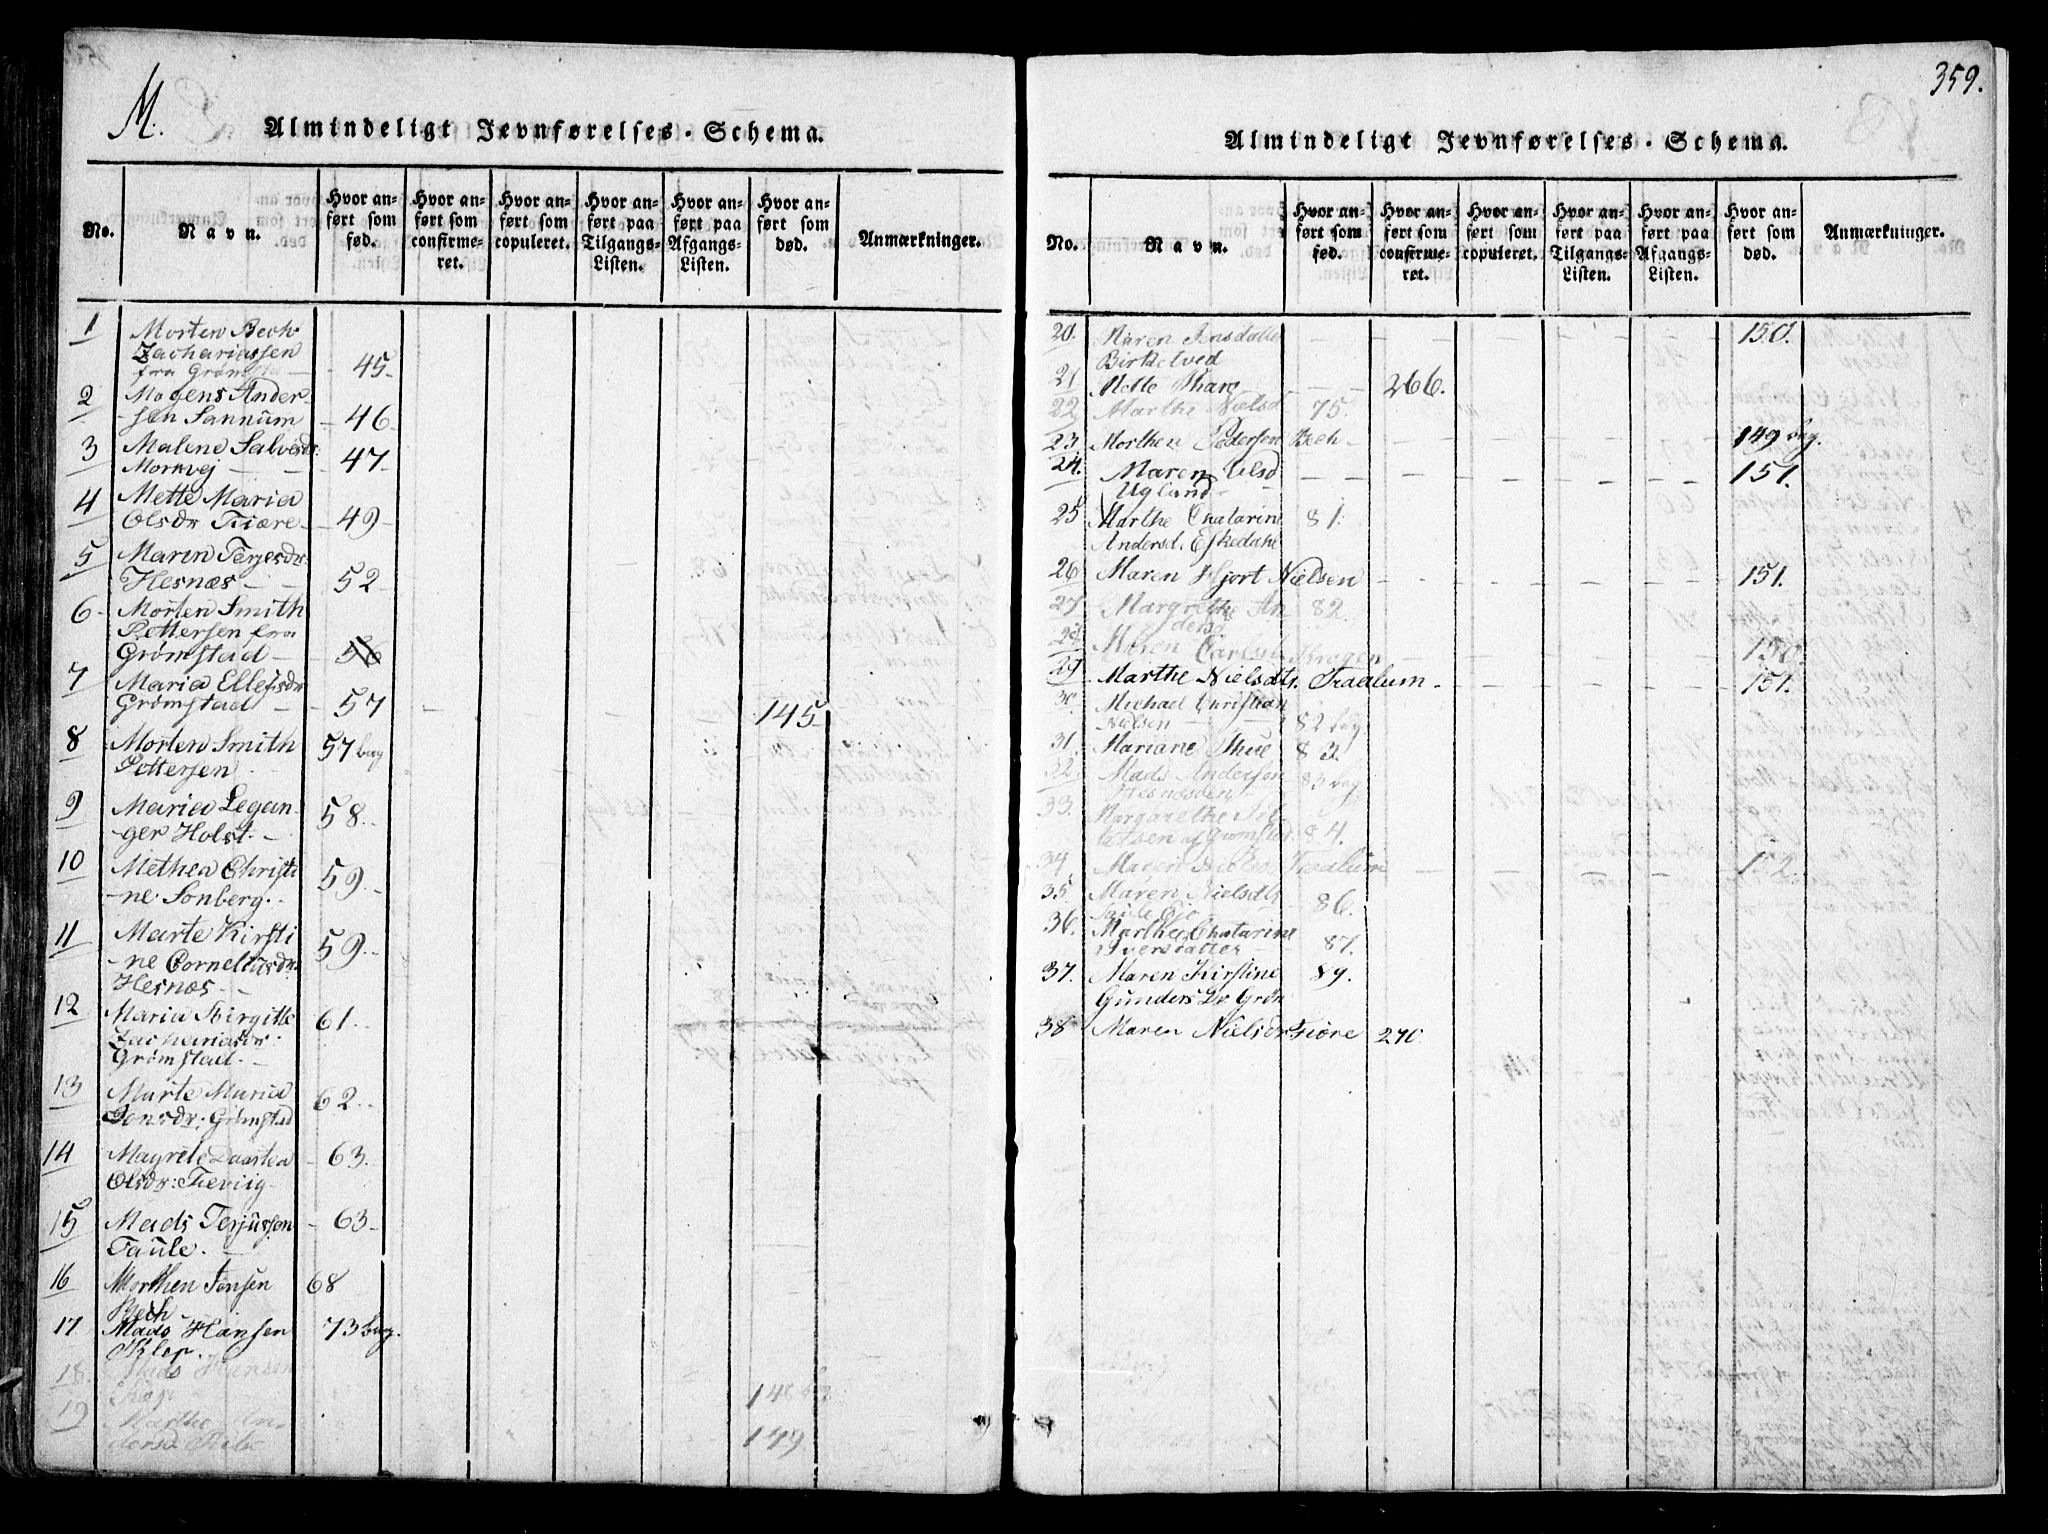 M.
Almindeligt Jevnførelses-Schema.
No.
Navn.
Hvor anført som fød.
Hvor anført som confirmeret.
Hvor anført som copuleret.
Hvor anført paa Tilgangs-Listen.
Hvor anført paa Afgangs-Listen.
Hvor anført som død.
Anmærkninger.
1 Morten Bech
Zachariassen
fra Grømst - 45.
2 Mogens Ander
-sen Sannum - 46.
3 Malene Salvesdr.
Morkvej - 47.
4 Mette Maria
Olsdr Fiære - 49
5 Maren Terjesdr.
Hesnæs - 52
6 Morten Smith
Pettersen fra
Grømstad - 56
7 Maria Ellefsdr
Grømstad - 57 - 145
8 Morten Smith 57 bag
Pettersen
9 Maria Legan-
-ger Holst. 58.
10 Methea Christi
-ne Sonberg. 59.
11 Marte Kirsti
-ne Corneliusdr. 59.
Hesnæs
12 Maria Birgitte 61.
Zachariasdr.
Grømstad.
13 Marte Maria 62.
Jonsdr: Grømstad
14 Magrete Daartea - 63.
Olsdr: Fieviig
15 Mads Terjussen - 63
Taule.
16 Morthen Jensen 68
Bech
17 Mads Hansen 73 bag.
Klep.
18. Mads Hansen
19 Marthe An-
dersd. 149
359.
Almindeligt Jevnførelses-Schema.
No.
Navn.
Hvor anført som fød.
Hvor anført som confirmeret.
Hvor anført som copuleret.
Hvor anført paa Tilgangs-Listen.
Hvor anført paa Afgangs-Listen.
Hvor anført som død.
Anmærkninger.
20. Maren Jensdatter 150.
Birketved
21 Mette Thare 266.
22 Marthe Nielsd. 75.
23. Morthen Pedersen Bech 149 bag.
24. Maren Olsd 151.
Ugland
25 Marthe Chatarine 81.
Andersd. Eskedahl
26 Maren Hjort Nielsen 151.
27 Margrethe An 82.
dersd
28 Maren Carlsd. Kragen 150.
29 Marthe Nielsdtr. Fradlum 151.
30. Michael Christian
Nielsen 82 bag.
31. Mariane Thue 83.
32. Mads Andersen 83 bag
33. Margarethe
af Grømstad 84.
34. Maren Nielsd. Fradlum 152.
35. Maren Nielsdtr
86.
36. Marthe Chatarine
Iversdatter 87.
37. Maren Kirstine 89.
Gunders Dr Grøn
38 Maren Nielsdr Fiære 270.